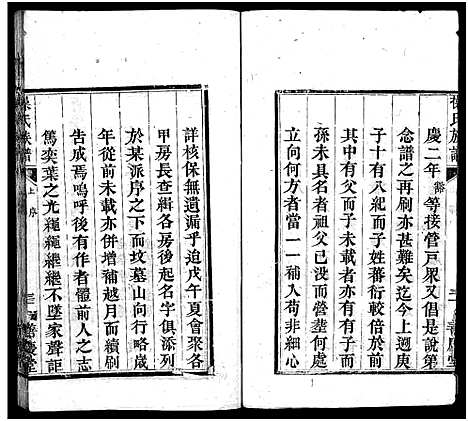 慶二年
等接管戸眾又曰是說第
念譜之再刷亦甚難矣迄今上遡庚
子十有八紀而子姓蕃衍創立有方
其中有父而子未載者亦有有子而
孫未具名者祖父已没而營塟何處
立向何方者當一一補入苟非細心
詳核保無遺漏乎迫戊午夏會聚各
甲房長查緝各房後起名字俱添列
於某派序之下而坟墓山向行略歳
年從前未載亦併增補越月而續刷
告成焉嗚呼後有作者體前人之志
篤奕葉之光繩繩繼繼不墜家聲詎
氏族譜
上序
三
善慶堂